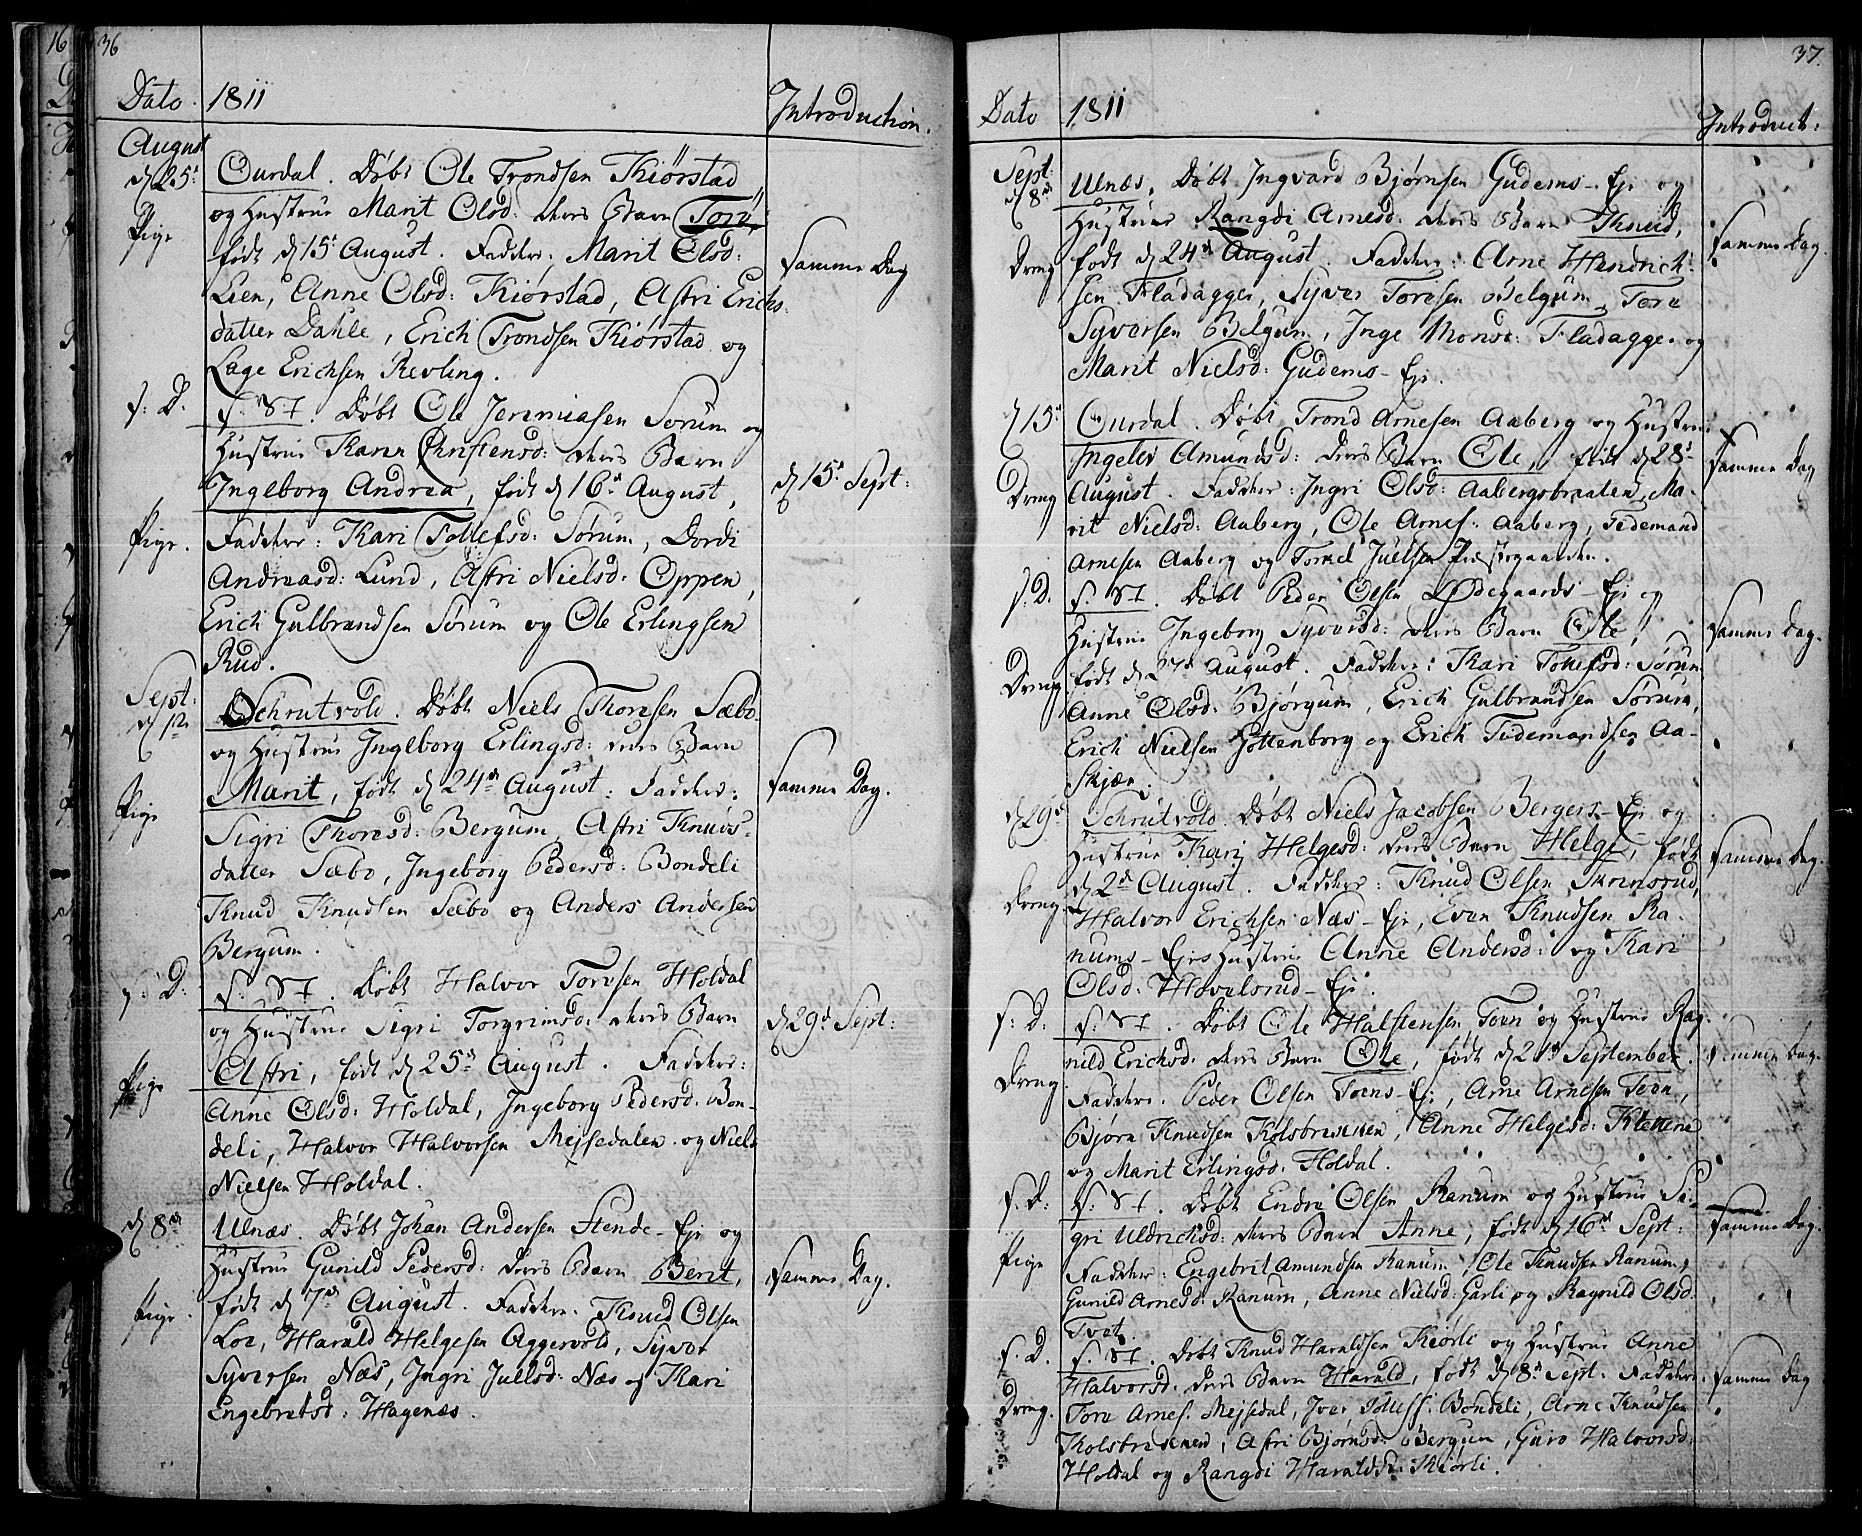 36
Dato 1811 Introduction.
August
d 25d Ourdal. Døbt Ole Trondsen Kiørstad
Pige og Hustrue Marit Olsd: deres Barn Tore,
født d 15d August. Faddere, Marit Olsd:
Samme Dag
Lien, Anne Olsd: Kiørstad, Astri Erichs-
datter Dahle, Erich Trondsen Kiørstad og
Lage Erichsen Revling.
s: D. S: St. Døbt Ole Jeremiasen Sørum og
Hustrue Karen Christensd: deres Barn
Ingeborg Andrea, født d 16d August, d 15d Sept:
Pige. Faddere: Kari Tollefsd: Sørum, Dordi
Andreasd: Lund, Astri Nielsd: Oppen,
Erich Gulbrandsen Sørum og Ole Erlingsen
Rud.
Sept:
d 1ste Schrutvold. Døbt Niels Thoresen Sæbo
og Hustrue Ingeborg Erlingsd: deres Barn
Pige Marit, født d 24d August: Faddere: Samme Dag.
Sigri Thoresd: Bergum, Astri Knuds-
datter Sæbo, Ingeborg Pedersd: Bondeli
Knud Knudsen Sæbo og Anders Andersen
Bergum.
s: D: S. St. Døbt Halvor Toresen Holdal
og Hustrue Sigri Torgrimsd: deres Barn d 29d Sept:
Pige Astri, født d 25d August. Faddere:
Anne Olsd: Holdal, Ingeborg Pedersd: Bon-
deli, Halvor Halvorsen Mejsedalen og Niels
Nielsen Holdal.
d 8d Ulnæs. Døbt Johan Andersen Stende-Eje og
Hustrue Gunild Pedersd: deres Barn Berit, Samme Dag.
Pige. født d 7d August. Faddere. Knud Olsen
Loe, Harald Helgesen Aggervold, Syver
Syversen Næs, Ingri Juelsd: Næs og Kari
Engebretsd: Hagenæs.
37.
Dato 1811 Introduct:
Sept:
d 8d Ulnæs. Døbt Ingvard Bjørnsen Gudems-Eje og
Hustrue Rangdi Arnesd: deres Barn Knud, Samme Dag.
Dreng født d 24d August. Faddere: Arne Hendrich-
sen Fladagger, Syver Toresen Belgum, Tore
Syversen Belgum, Inge Monsd: Fladagger og
Marit Nielsd: Gudems-Eje.
d 15d Ourdal. Døbt Trond Arnesen Aaberg og Hustrue
Ingelev Amundsd: deres Barn Ole, født d 28d Samme Dag
Dreng August. Faddere: Ingri Olsd: Aabergsbraaten, Ma-
rit Nielsd: Aaberg, Ole Arnes: Aaberg, Tedemand
Arnesen Aaberg og Tomel Juelsen Præstegaarden.
s: D. S. St. Døbt Peder Olsen Ødegaards-Eje og
Hustrue Ingeborg Syversd: deres Barn Ole, Samme Dag.
Dreng født d 27d August. Faddere: Kari Tollefsd: Sørum
Anne Olsd: Bjørgum, Erich Gulbrandsen Sørum,
Erich Nielsen Gottenborg og Erich Tidemandsen Aa-
skjær.
d 29d Schrutvold. Døbt Niels Jacobsen Bergers-Eje og
Hustrue Kari Helgesd: deres Barn Helge, født Samme Dag.
Dreng d 2d August. Faddere: Knud Olsen Skrinsrud,
Halvor Erichsen Næs-Eje, Even Knudsen Ra-
nums-Ejes Hustrue Anne Andersd: og Kari
Olsd: Hovelsrud-Eje.
s: D. S: St. Døbt Ole Halstensen Toen og Hustrue Rag-
nild Erichsd: deres Barn Ole, født d 21d September. Samme Dag.
Dreng. Faddere. Peder Olsen Toens-Eje, Arne Arnesen Toen,
Bjørn Knudsen Kolsbrusveen, Anne Helgesd: Klettene
og Marit Erlingsd: Holdal.
s. D. S: St. Døbt Endre Olsen Ranum og Hustrue Si-
gri Uldrichsd: deres Barn Anne, født d 16d Sept: Samme Dag.
Pige Faddere: Engebrit Amundsen Ranum, Ole Knudsen Ranum,
Gunild Arnesd: Ranum, Anne Nielsd: Garli og Ragnild Olsd:
Tvet.
s. D. S. St. Døbt Knud Haraldsen Kiørli og Hustrue Anne
Halvorsd: deres Barn Harald, født d 8d Sept: Faddere: Samme Dag
Dreng. Tore Arnes: Mejsedal, Iver Tollefs: Bondeli, Arne Knudsen
Kolsbrusveen, Astri Bjørnsd: Bergum, Guro Halvorsd:
Holdal og Rangdi Haraldsd: Kiørli.